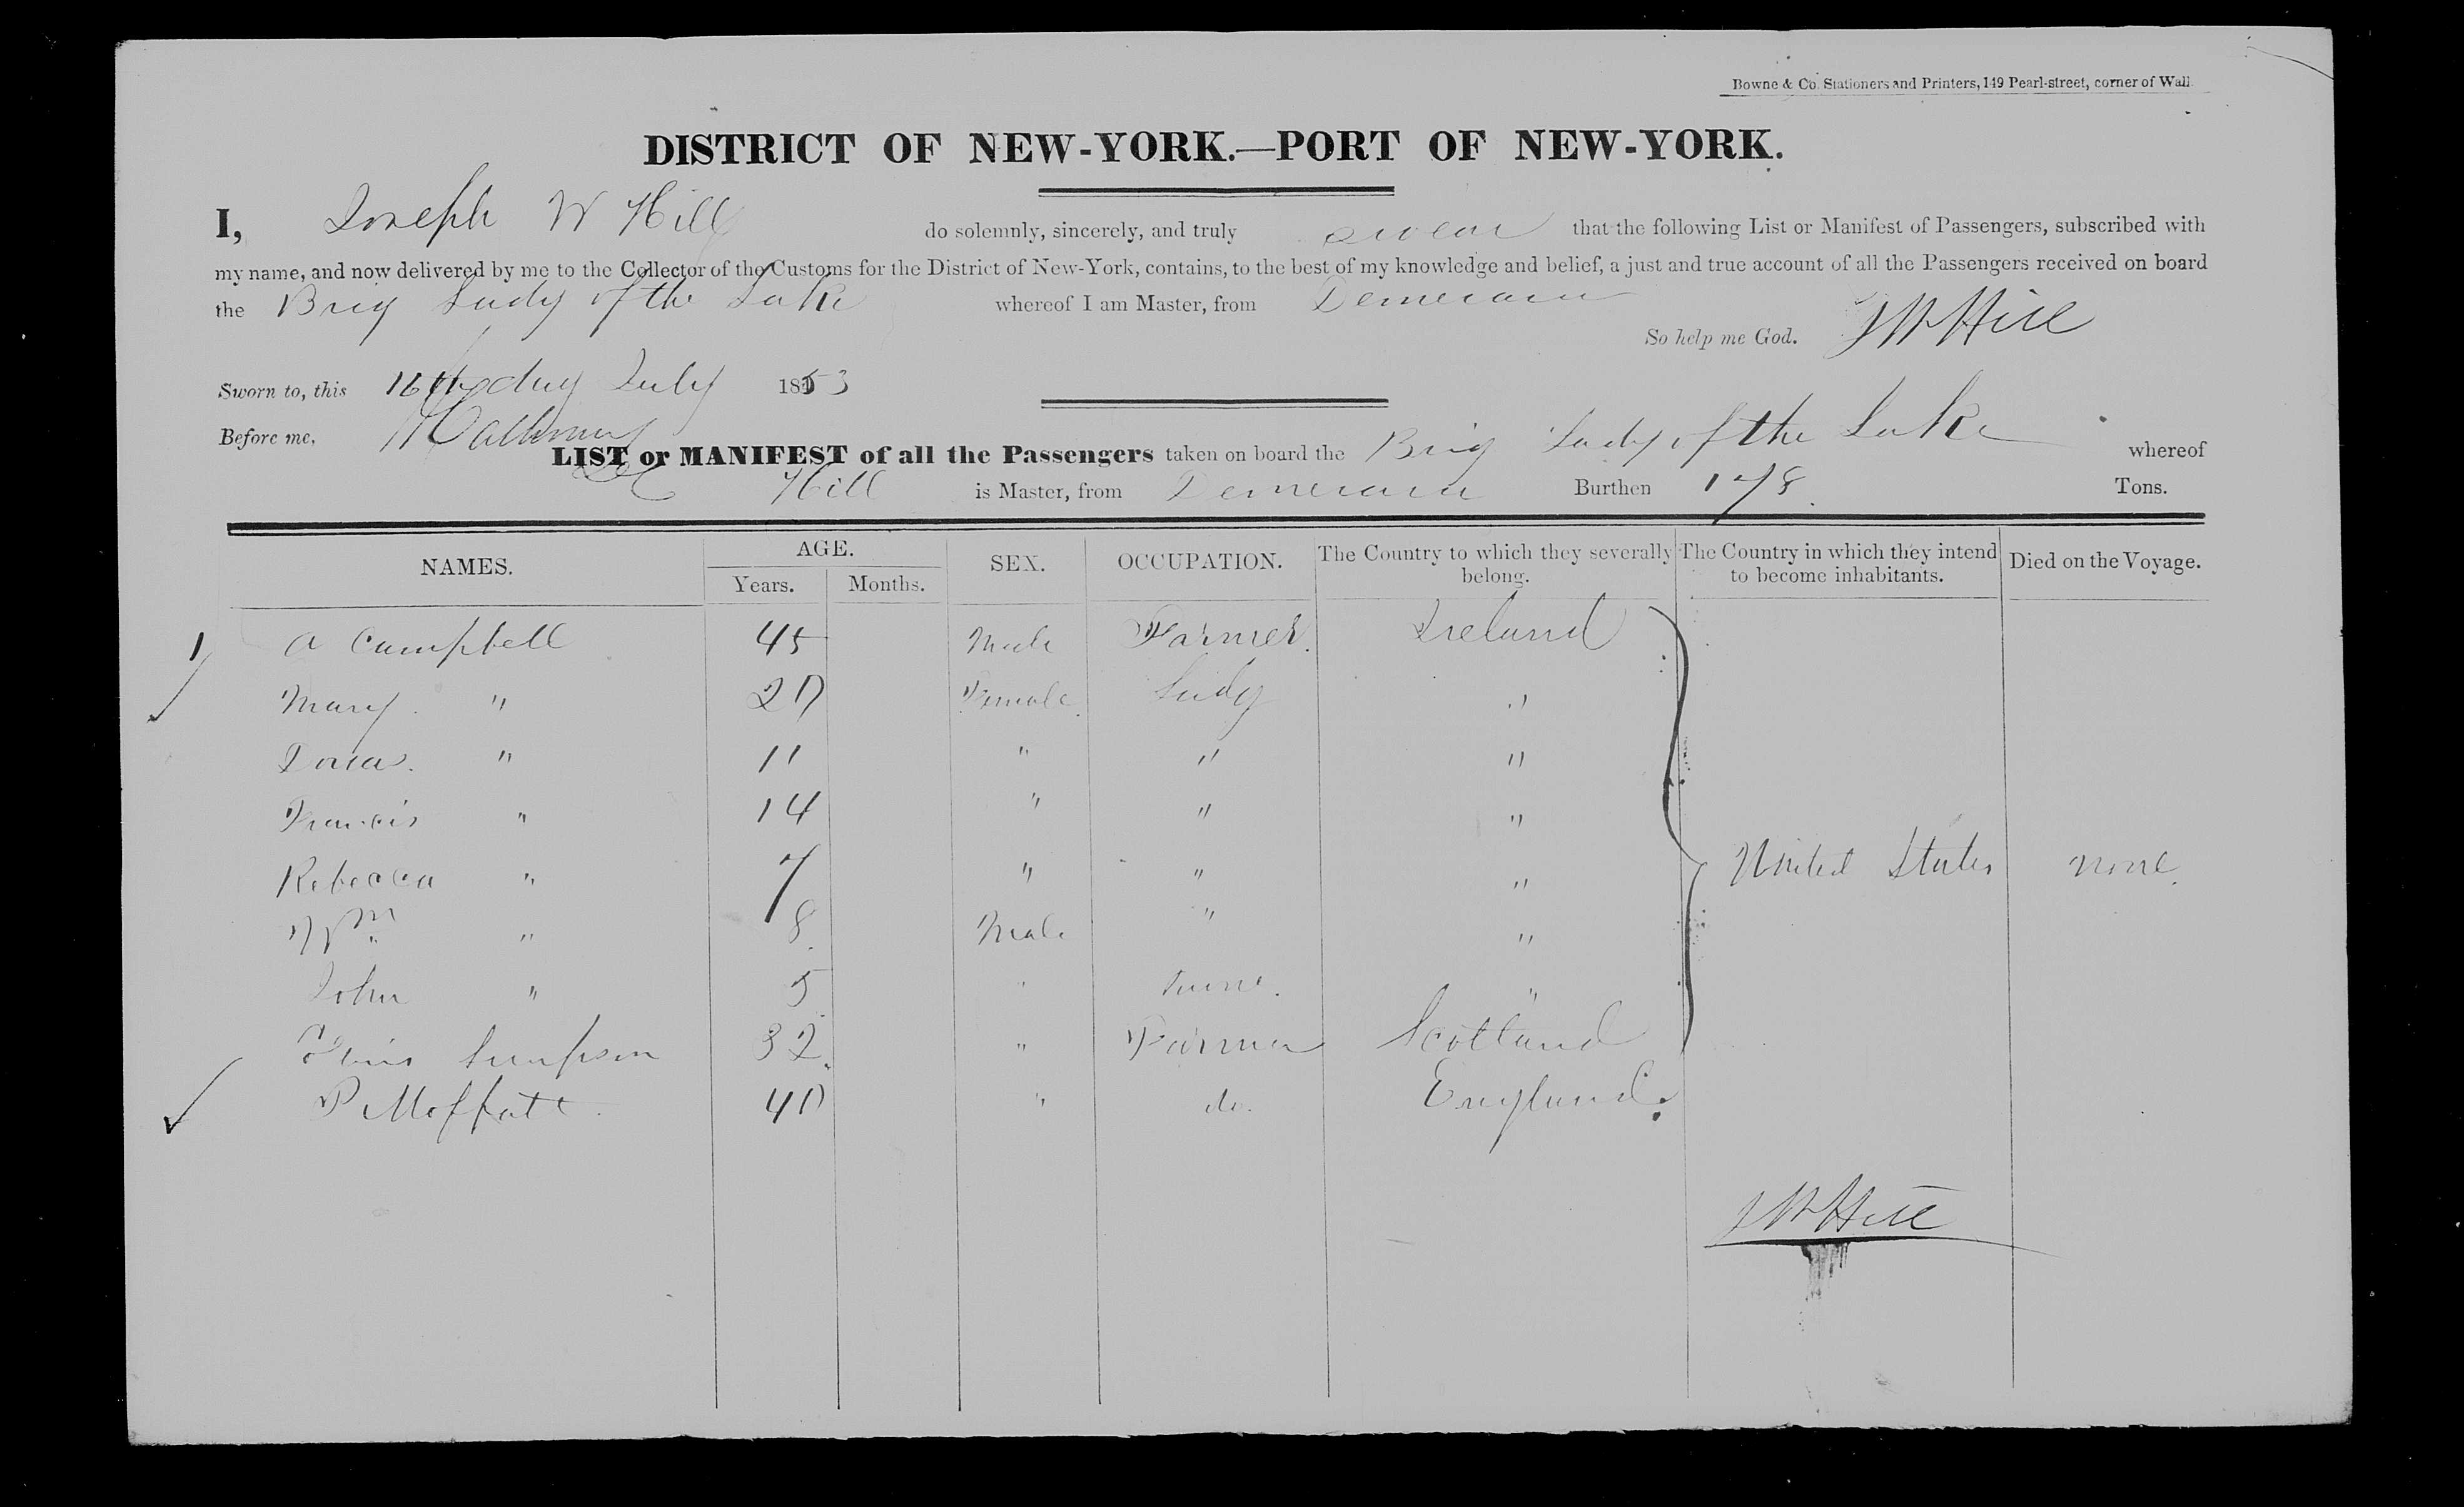 Bowne & Co. Stationers and Printers, 149 Pearl-street, corner of Wall.
DISTRICT OF NEW-YORK.—PORT OF NEW-YORK.
I, Joseph W Hill do solemnly, sincerely, and truly swear that the following List or Manifest of Passengers, subscribed with
my name, and now delivered by me to the Collector of the Customs for the District of New-York, contains, to the best of my knowledge and belief, a just and true account of all the Passengers received on board
the Brig Lady of the Lake whereof I am Master, from Demerara
So help me God. J W Hill
Sworn to, this 16th day July 1853
Before me,
LIST or MANIFEST of all the Passengers taken on board the Brig Lady of the Lake whereof
Hill is Master, from Demerara Burthen 178 Tons.
NAMES. AGE. Years. Months. SEX. OCCUPATION. The Country to which they severally belong. The Country in which they intend to become inhabitants. Died on the Voyage.
1 A Campbell 45 Male Farmer. Ireland
Mary " 20 Female Lady "
" 11 " " "
Francis " 14 " " "
Rebecca " 7 " " " United States none.
Wm " 8 Male " "
John " 5 " "
Simpson 32 " Farmer Scotland
P Moffatt 40 " do. England
J W Hill